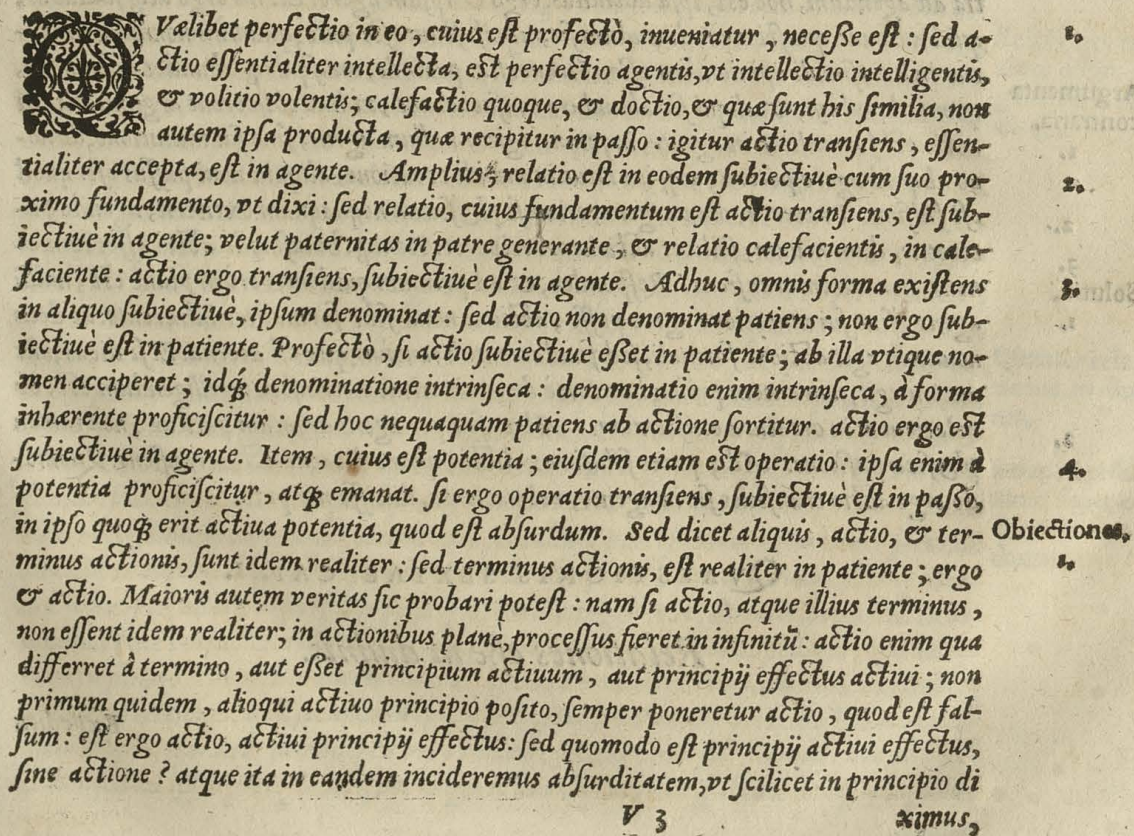 QVælibet perfectio in eo, cuius est profectò, inueniatur, necesse est: sed a- 1.
ctio essentialiter intellecta, est perfectio agentis, vt intellectio intelligentis,
& volitio volentis; calefactio quoque, & doctio, & quæ sunt his similia, non
autem ipsa producta, quæ recipitur in passo: igitur actio transiens, essen-
tialiter accepta, est in agente. Amplius; relatio est in eodem subiectiuè cum suo pro- 2.
ximo fundamento, vt dixi: sed relatio, cuius fundamentum est actio transiens, est sub-
iectiuè in agente; velut paternitas in patre generante, & relatio calefacientis, in cale-
faciente: actio ergo transiens, subiectiuè est in agente. Adhuc, omnis forma existens 3.
in aliquo subiectiuè, ipsum denominat: sed actio non denominat patiens; non ergo sub-
iectiuè est in patiente. Profectò, si actio subiectiuè esset in patiente; ab illa vtique no-
men acciperet; idq́; denominatione intrinseca: denominatio enim intrinseca, à forma
inhærente proficiscitur: sed hoc nequaquam patiens ab actione sortitur. actio ergo est
subiectiuè in agente. Item, cuius est potentia; eiusdem etiam est operatio: ipsa enim à 4.
potentia proficiscitur, atq; emanat. si ergo operatio transiens, subiectiuè est in passo,
in ipso quoq; erit actiua potentia, quod est absurdum. Sed dicet aliquis, actio, & ter- Obiectiones.
minus actionis, sunt idem realiter: sed terminus actionis, est realiter in patiente; ergo 1.
& actio. Maioris autem veritas sic probari potest: nam si actio, atque illius terminus,
non essent idem realiter; in actionibus planè, processus fieret in infinitū: actio enim qua
differret à termino, aut esset principium actiuum, aut principij effectus actiui; non
primum quidem, alioqui actiuo principio posito, semper poneretur actio, quod est fal-
sum: est ergo actio, actiui principij effectus: sed quomodo est principij actiui effectus,
sine actione? atque ita in eandem incideremus absurditatem, vt scilicet in principio di
V 3 ximus,